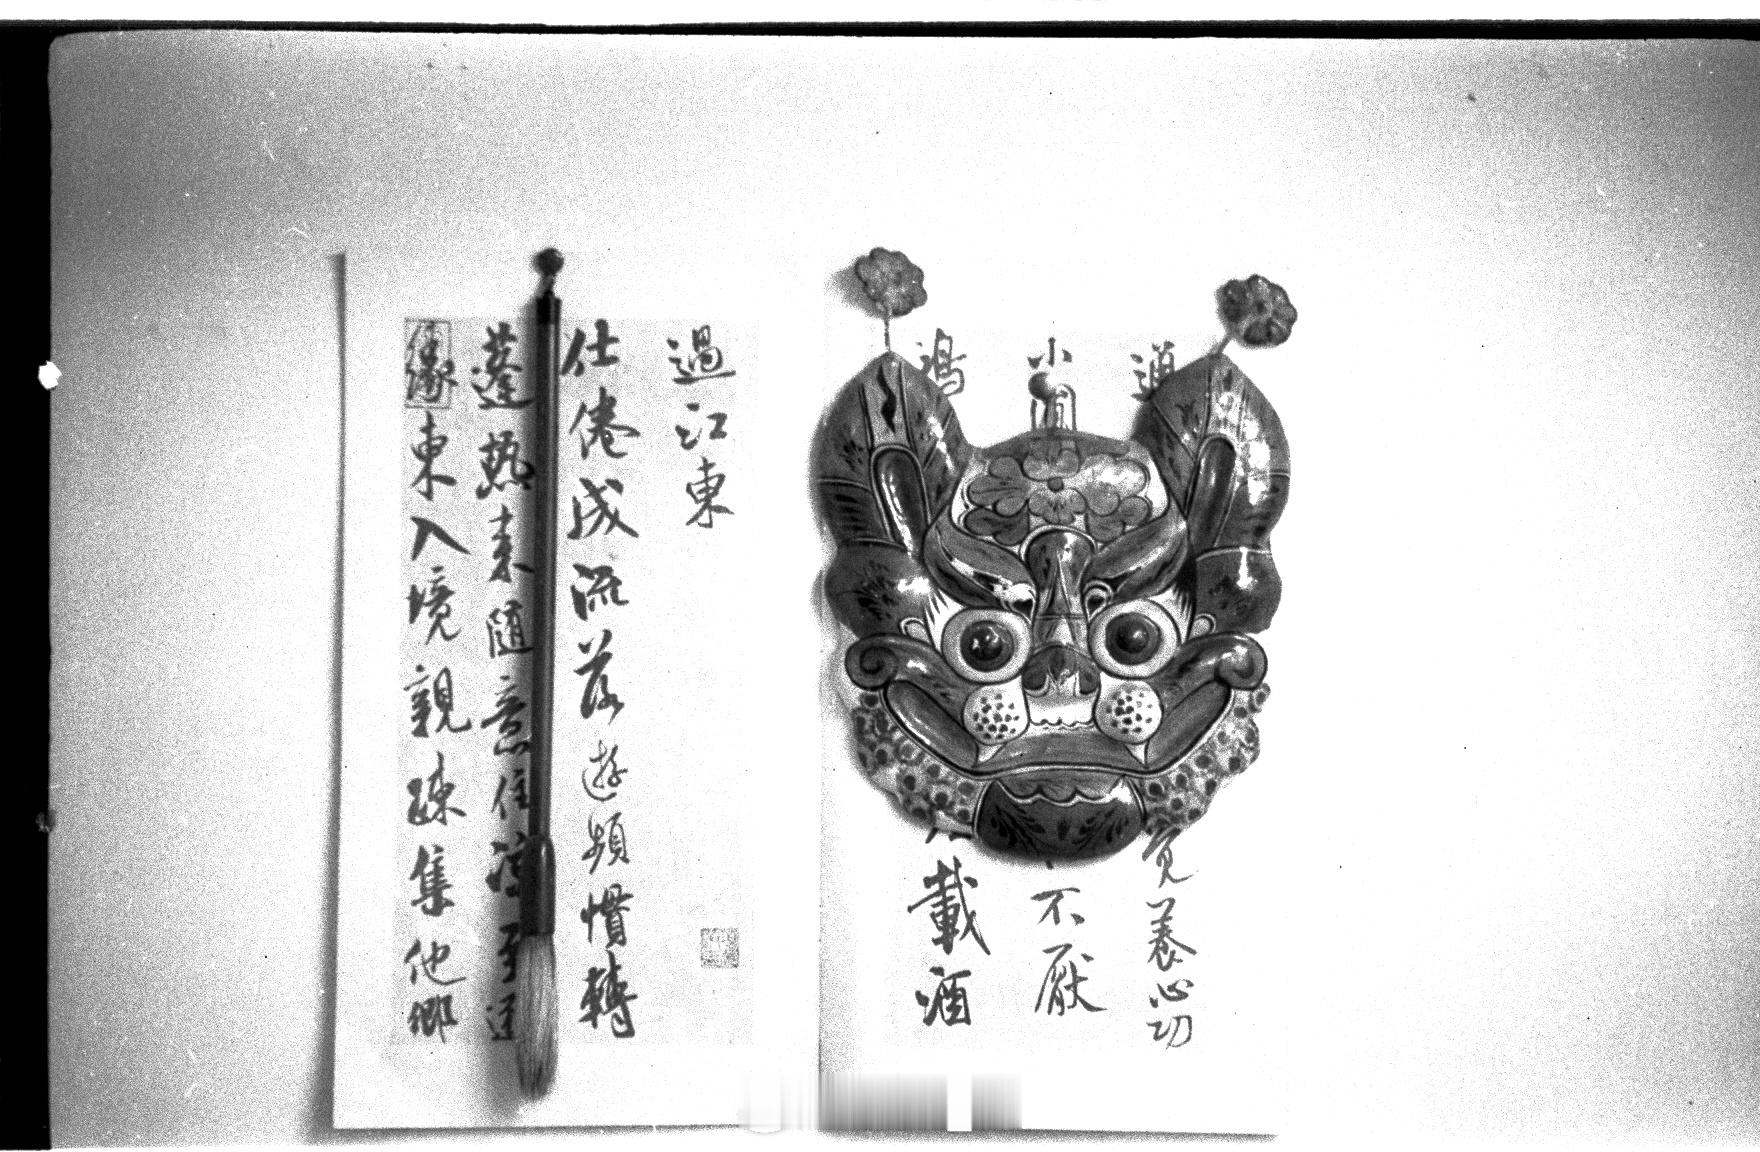 道覺養心功
小圃不厭
鴻載酒
過江東
仕倦成流落遊頻慣轉
蓬熱來隨意住涼至逐
緣東入境親疎集他鄉